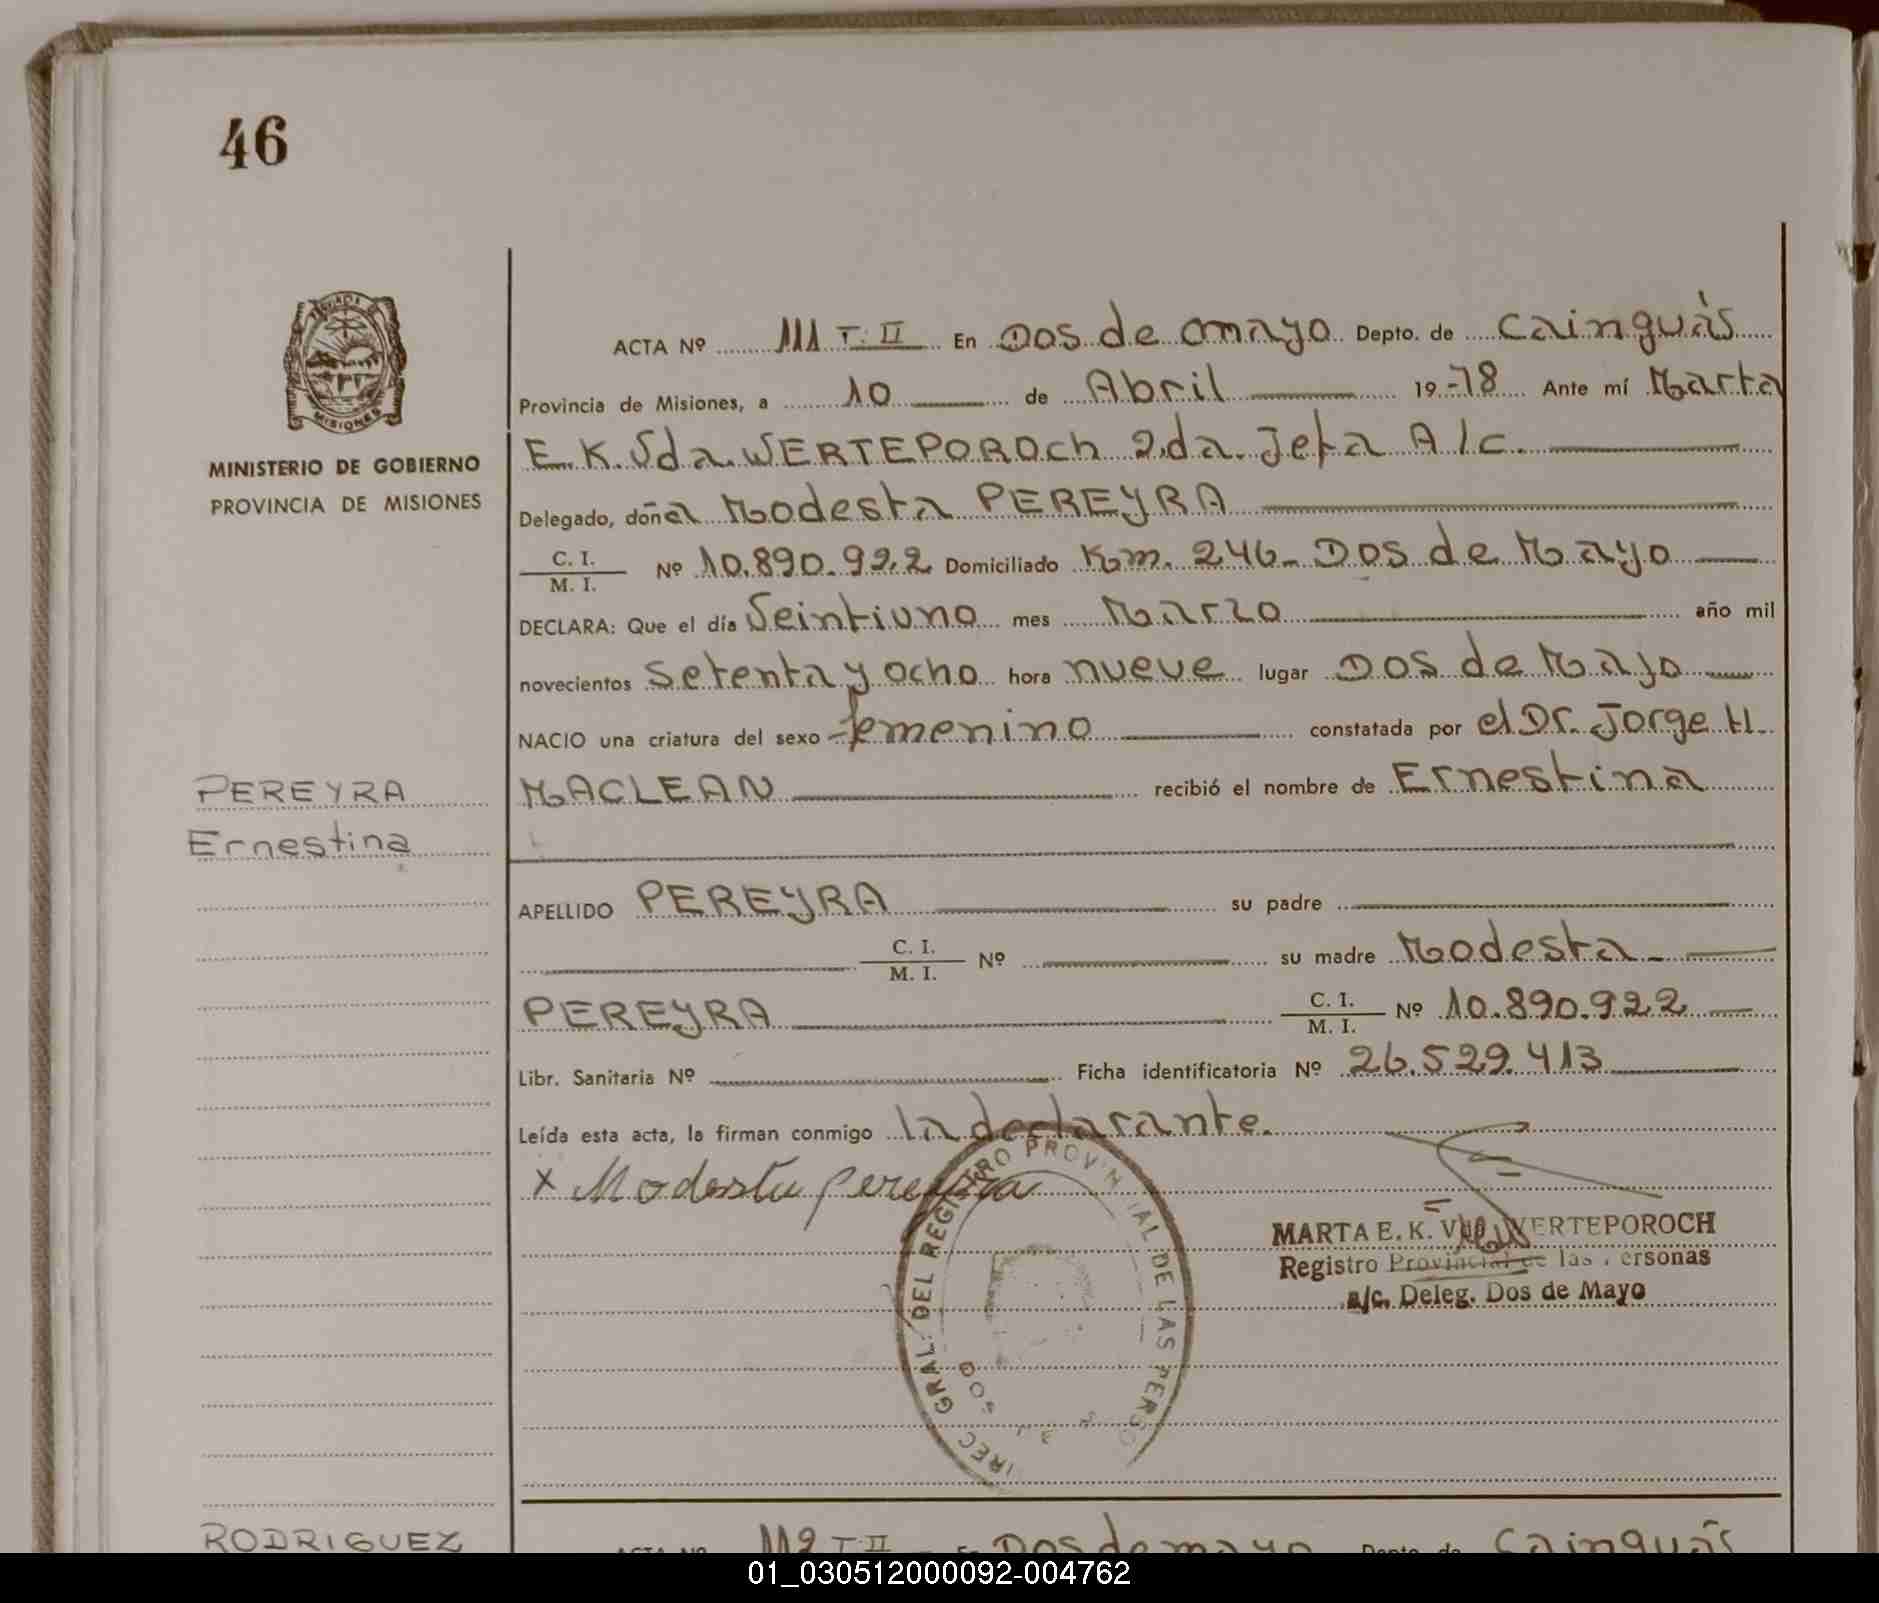 46
MINISTERIO DE GOBIERNO
PROVINCIA DE MISIONES
ACTA Nº 111 T: II En Dos de Mayo Depto. de Cainguás
Provincia de Misiones, a 10 de Abril 19-78 Ante mí Marta
E. K. Vda. WERTEPOROCH 2da. Jefa A/C.
Delegado, doña Modesta PEREYRA
C. I.
M. I. Nº 10.890.922 Domiciliado Km. 246- Dos de Mayo
DECLARA: Que el día Veintiuno mes Marzo año mil
novecientos setenta y ocho hora nueve lugar Dos de Mayo
NACIO una criatura del sexo femenino constatada por el Dr. Jorge H.
MACLEAN recibió el nombre de Ernestina
PEREYRA
Ernestina
APELLIDO PEREYRA su padre
C. I.
M. I. Nº su madre Modesta
PEREYRA C. I.
M. I. Nº 10.890.922
Libr. Sanitaria Nº Ficha identificatoria Nº 26.529.413
Leída esta acta, la firman conmigo la declarante.
x Modesta Pereyra
IREC GRAL. DEL REGISTRO PROVINCIAL DE LAS PERSO
MARTA E. K. Vda. WERTEPOROCH
Registro Provincial de las Personas
a/c. Deleg. Dos de Mayo
RODRIGUEZ
ACTA Nº 112 T II En Dos de mayo Depto de Cainguás
01_030512000092-004762